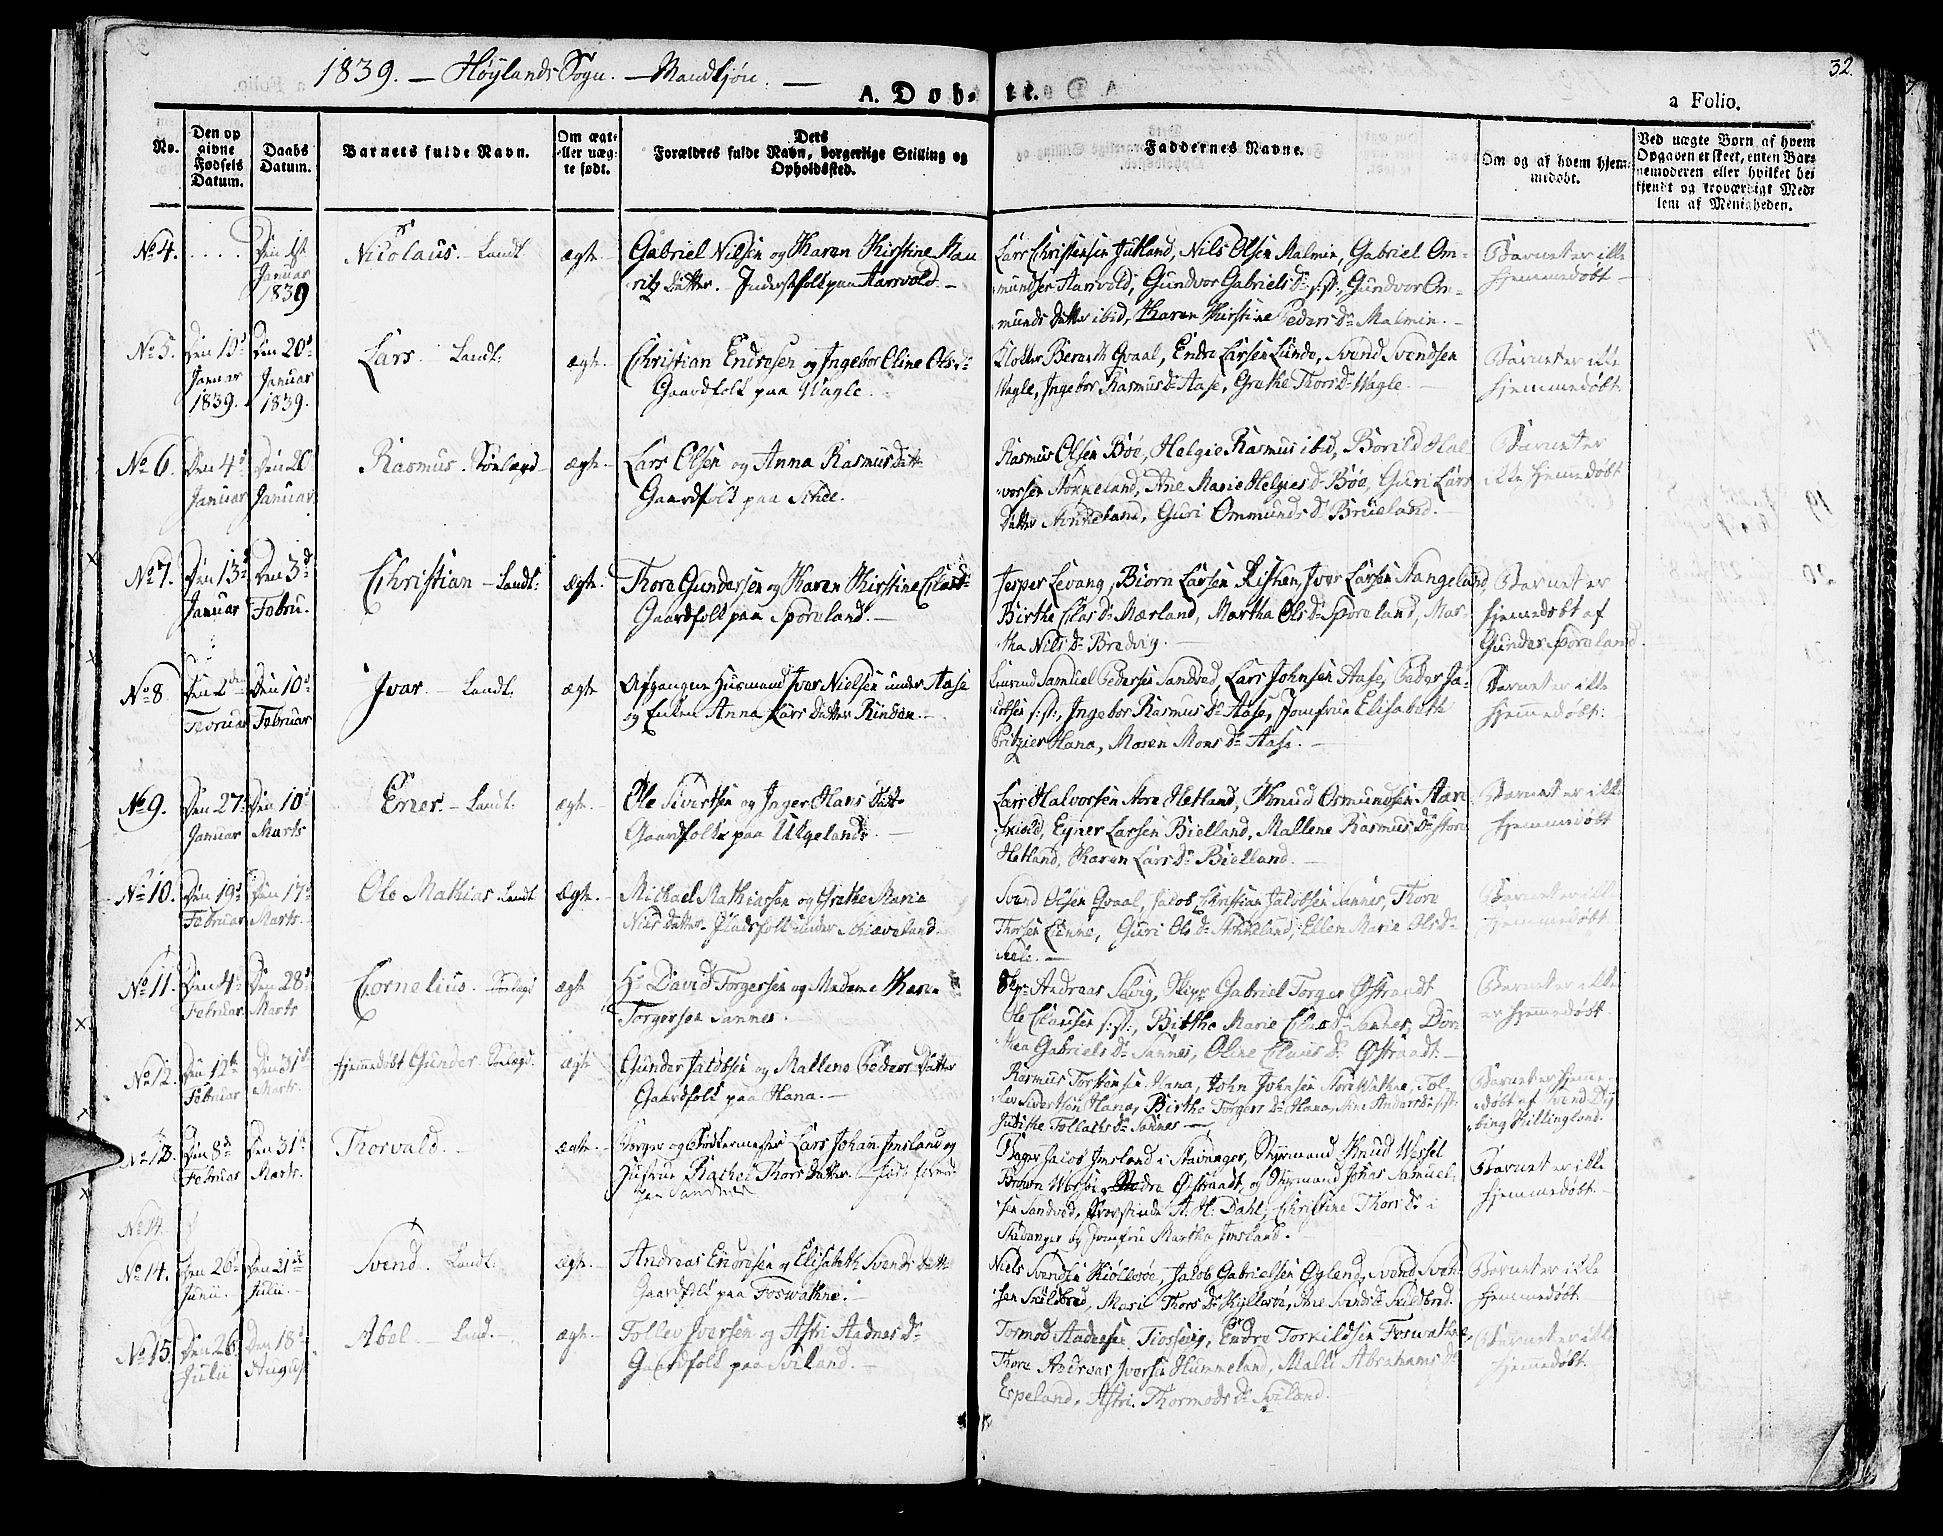 1839. — Høylands Sogn. — Mandkjøn. —
32.
A. Døb- te.
a Folio.
No.
Den op
givne
Fødsels
Datum.
Daabs
Datum.
Barnets fulde Navn.
Om ægt-
eller uæg-
te født.
Dets
Forældres fulde Navn, borgerlige Stilling og
Opholdssted.
Faddernes Navne.
Om og af hvem hjem-
medøbt.
Ved uægte Børn af hvem
Opgaven er skeet, enten Bar-
nemoderen eller hvilket be
kjendt og troværdigt Med-
lem af Menigheden.
No 4.
. . . .
Den 1st
Januar
1839
Nicolaus. - Landt
ægte
Gabriel Nilsen og Karen Kirstine Mau
ritz Datter. Inderstfolk paa Aarsvold. —
Lars Christensen Jutland, Nils Olsen Malmin, Gabriel Om-
mundsen Aarsvold, Gundvor Gabriels Dr s:st:, Gundvor Om-
munds Datter ibid, Karen Kirstine Peders Dr Malmin. —
Barnet er ikke
hjemmedøbt —
No 5.
Den 13d
Januar
1839.
Den 20d
Januar
1839.
Lars. Landt:
ægte.
Christian Endresen og Ingebor Eline Ols Dr
Gaardfolk paa Vagle.
Klokker Berendt Gvaal, Endre Larsen Lunde, Svend Svendsen
Vagle, Ingebor Rasmus Dr Aase, Grethe Thors Dr Vagle.
Barnet er ikke
hjemmedøbt
No 6.
Den 4d
Januar
Den 20
Januar.
Rasmus.
ægte.
Lars Olsen og Anna Rasmus Datt
Gaardfolk paa
Rasmus Olsen Böe, Helgie Rasmus ibid, Borild Hal
vorsen Hoppeland, Ane Marie Helgies Dr Böe, Guri Lars
Datter, Guri Ommunds Dr Brueland.
Barnet er
ikke hjemedøbt
No 7.
Den 13d
Januar
Den 3d
Febru.
Christian - Landt:
ægte.
Thore Gundersen og Karen Kirstine
Gaardfolk paa Sporeland. —
Jesper Levang, Biorn Larsen Risken, Iver Larsen Stangeland
Birthe Elias Dr Mærland, Martha Ols Dr Sporeland, Mar-
tha Nils Dr Bredvig. —
Barnet er
hjemedøbt af
Gunder Sporeland.
No 8
Den 2den
Februar
Den 10d
Februar
Ivar. — Landt.
ægte
Afgangne Husmand Iver Nielsen under Aase
og Enken Anna Lars Datter Rinden. —
Samuel Pedersen Sandved, Lars Johnsen Aase, Peder Ja-
cobsen s:st:, Ingebor Rasmus Dr Aase, Jomfrue Elisabeth
Pritzier Hana, Maren Mons Dr Aase. —
Barnet er ikke
hjemedøbt:
No 9.
Den 27.
Januar
Den 10d
Marts
Ener. — Landt:
ægte.
Ole Sivertsen og Inger Hans Datt
Gaardfolk paa Utgeland. —
Lars Halvorsen Store Hetland, Knud Osmundsen
Eyner Larsen Bielland, Mallene Rasmus Dr store
Hetland, Karen Lars Dr Bielland. —
Barnet er ikke
hjemmedøbt
No 10.
Den 19d
Februar
Den 17d
Marts.
Ole Mathias Landt
Ægte.
Michael Mathiassen og Grethe Marie
Nils Datter. Pladsfolk under Schiæveland.
Svend Olsen Gvaal, Jacob Christian Jacobsen Sannes, Thore
Thorsen Lunne, Guri Ols Dr, Ellen Marie Ols Dr
Barnet er ikke
hjemmedøbt
No 11.
Den 4d
Februar
Den 28d
Marts
Cornelius.
ægte
Hr David Torgersen og Madame Karen
Torgersen Sannes. —
Andreas Selvig, Gabriel Torger Østraadt
Ole Clausen s:st:, Birthe Marie Sannes, Dor-
thea Gabriels Dr Sannes, Oline Claus Dr Østraadt. —
Barnet er ikke
er hjemmedøbt
No 12.
Den 12te
Februar
Den 31st
Marts.
hjemmedøbt Gunder
ægte
Gunder Jacobsen og Mallene Peders Datter
Gaardfolk paa Hana. —
Rasmus Torstensen Hana, John Johnsen Store Wathne, Tol-
lev Sivertsen Hana, Birthe Torgers Dr Hana, Anders Dr s:st:
Judithe Tollaks Dr Sannes —
Barnet er hjemme-
døbt af Svend
Skillingland.
No 13.
Den 8d
Februar
Den 31t
Marts.
Thorvald. —
ægte.
Borger og Lars Johan Imsland og
Hustrue Rachel Thors Datter.
Sandnes
Jacob Imsland i Stavanger, Styrmand Knud Wessel
Brown, Østraadt, og Styrmand Johas Samuel
sen Sandved, A. H. Dahl, Christine Thors Dr i
Stavanger og Jomfru Martha Imsland. —
Barnet er ikke
hjemmedøbt. —
No 14.
No 14.
Den 26d
Junii.
Den 21de
Julii. —
Svend. Landt.
ægte.
Andreas Endresen og Elisabeth Svends Datt
Gaardfolk paa Foswathne. —
Niels Svendsen Kiøllesøe, Jacob Gabrielsen Øglend, Svend Sven-
sen Skieldbred, Marie Thors Dr Kyllesøe, Ane Svends Dr Skieldbred.
Barnet er ikke
hjemmedøbt.
No 15.
Den 26.
Julii
Den 18d
August
Abel — Land.
ægte.
Tollev Iversen og Astri Aadnes Dr
Gaardfolk paa Sviland. —
Tormod Aadnesen, Endre Torkildsen Foswathne,
Thore Andreas Iversen Hummeland, Malli Abrahams Dr
Espeland, Astri Thormods Dr Sviland. —
Barnet er ikke
hjemmedøbt.